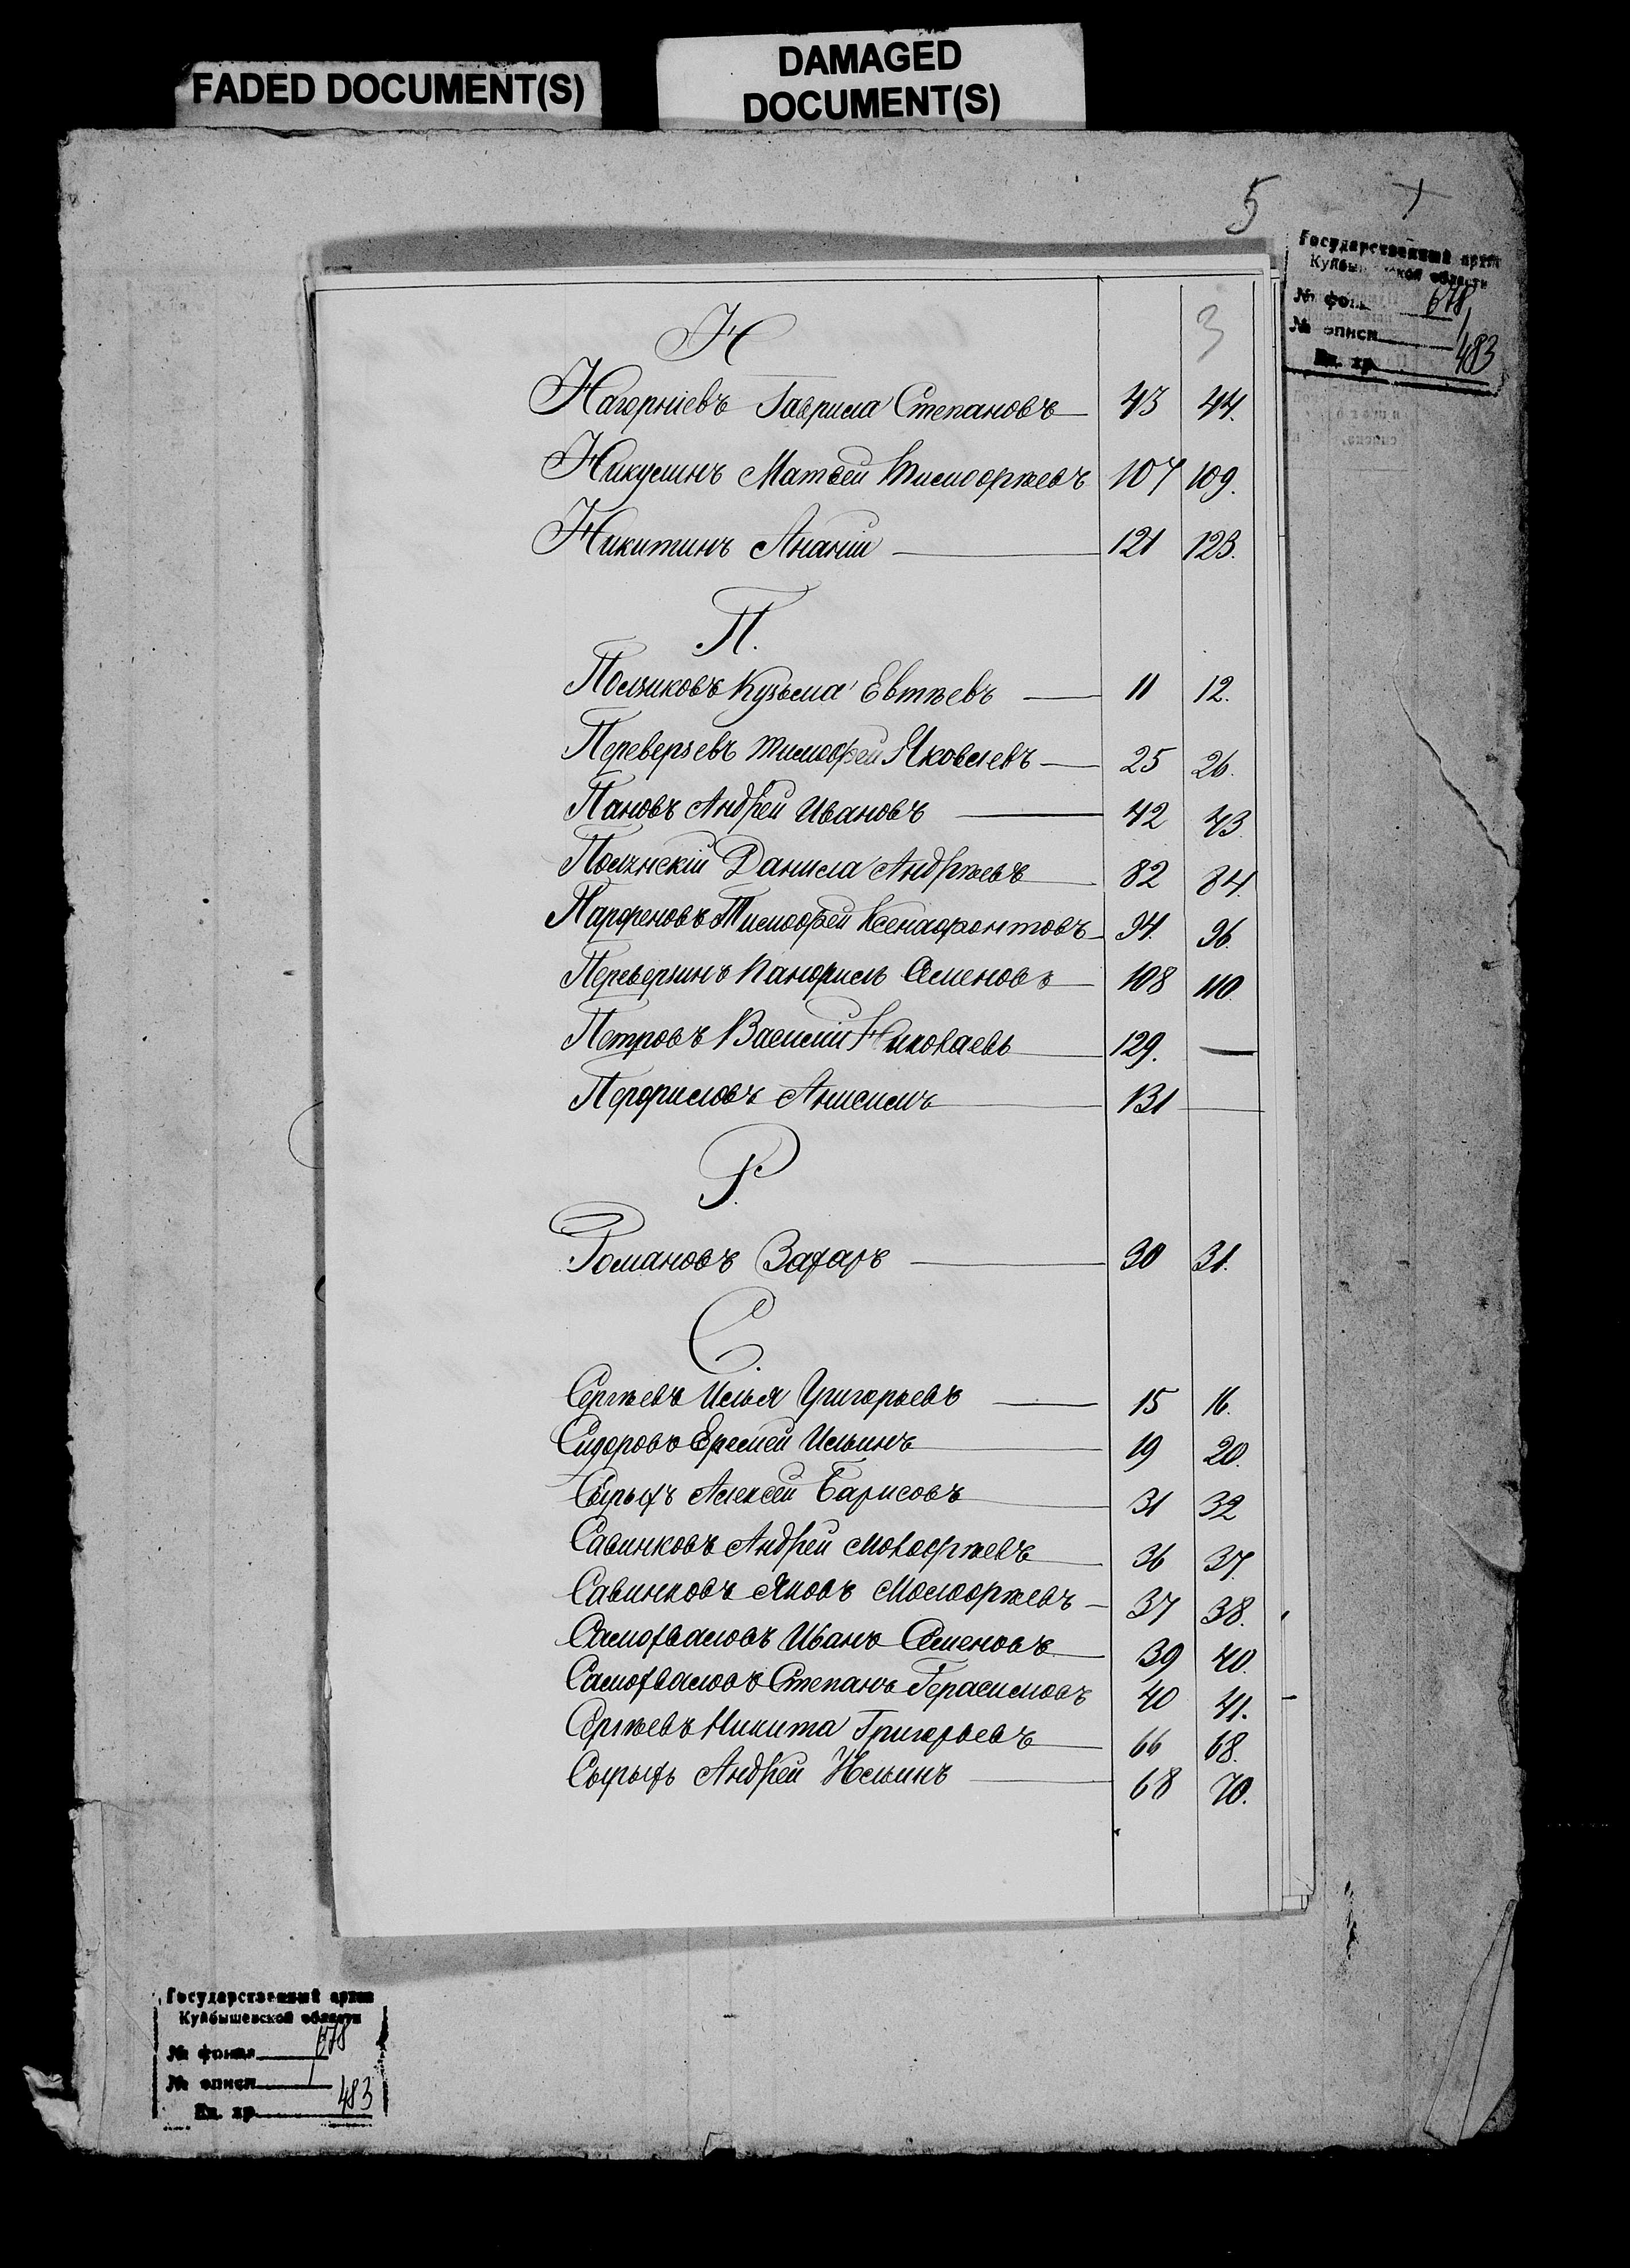 FADED DOCUMENT(S)
DAMAGED
DOCUMENT(S)
5
Государственный архив
Куйбышевской области
№ фонда 678
№ описи 1
Ед. хр. 483
3
Н
Нагорніевъ Гаврила Степановъ 43 44.
Никулинъ Матвей Тимофѣевъ 107 109.
Никитинъ Ананій 121 123.
П.
Ползиковъ Кузьма Евтѣевъ 11 12.
Переверзевъ Тимофей Яковлевъ 25 26.
Пановъ Андрей Ивановъ 42 43
Полянскій Данила Андрѣевъ 82 84.
Парфеновъ Тимофей Ксенафонтовъ 94. 96.
Переверзинъ Панфилъ Семеновъ 108 110.
Петровъ Василій Николаевъ 129. —
Перфиловъ Анисимъ 131 —
Р.
Романовъ Захаръ 30 31.
С.
Сергѣевъ Илья Григорьевъ 15 16.
Сидоровъ Еремей Ильинъ 19 20.
Сырыхъ Алексей Барисовъ 31 32
Савинковъ Андрей Молофѣевъ 36 37.
Савинковъ Яковъ Молофѣевъ 37 38.
Самохваловъ Иванъ Семеновъ 39 40.
Самохваловъ Степанъ Герасимовъ 40 41.
Сергѣевъ Никита Григорьевъ 66 68.
Сырыхъ Андрей Ильинъ 68 70.
Государственный архив
Куйбышевской области
№ фонда 678
№ описи 1
Ед. хр. 483